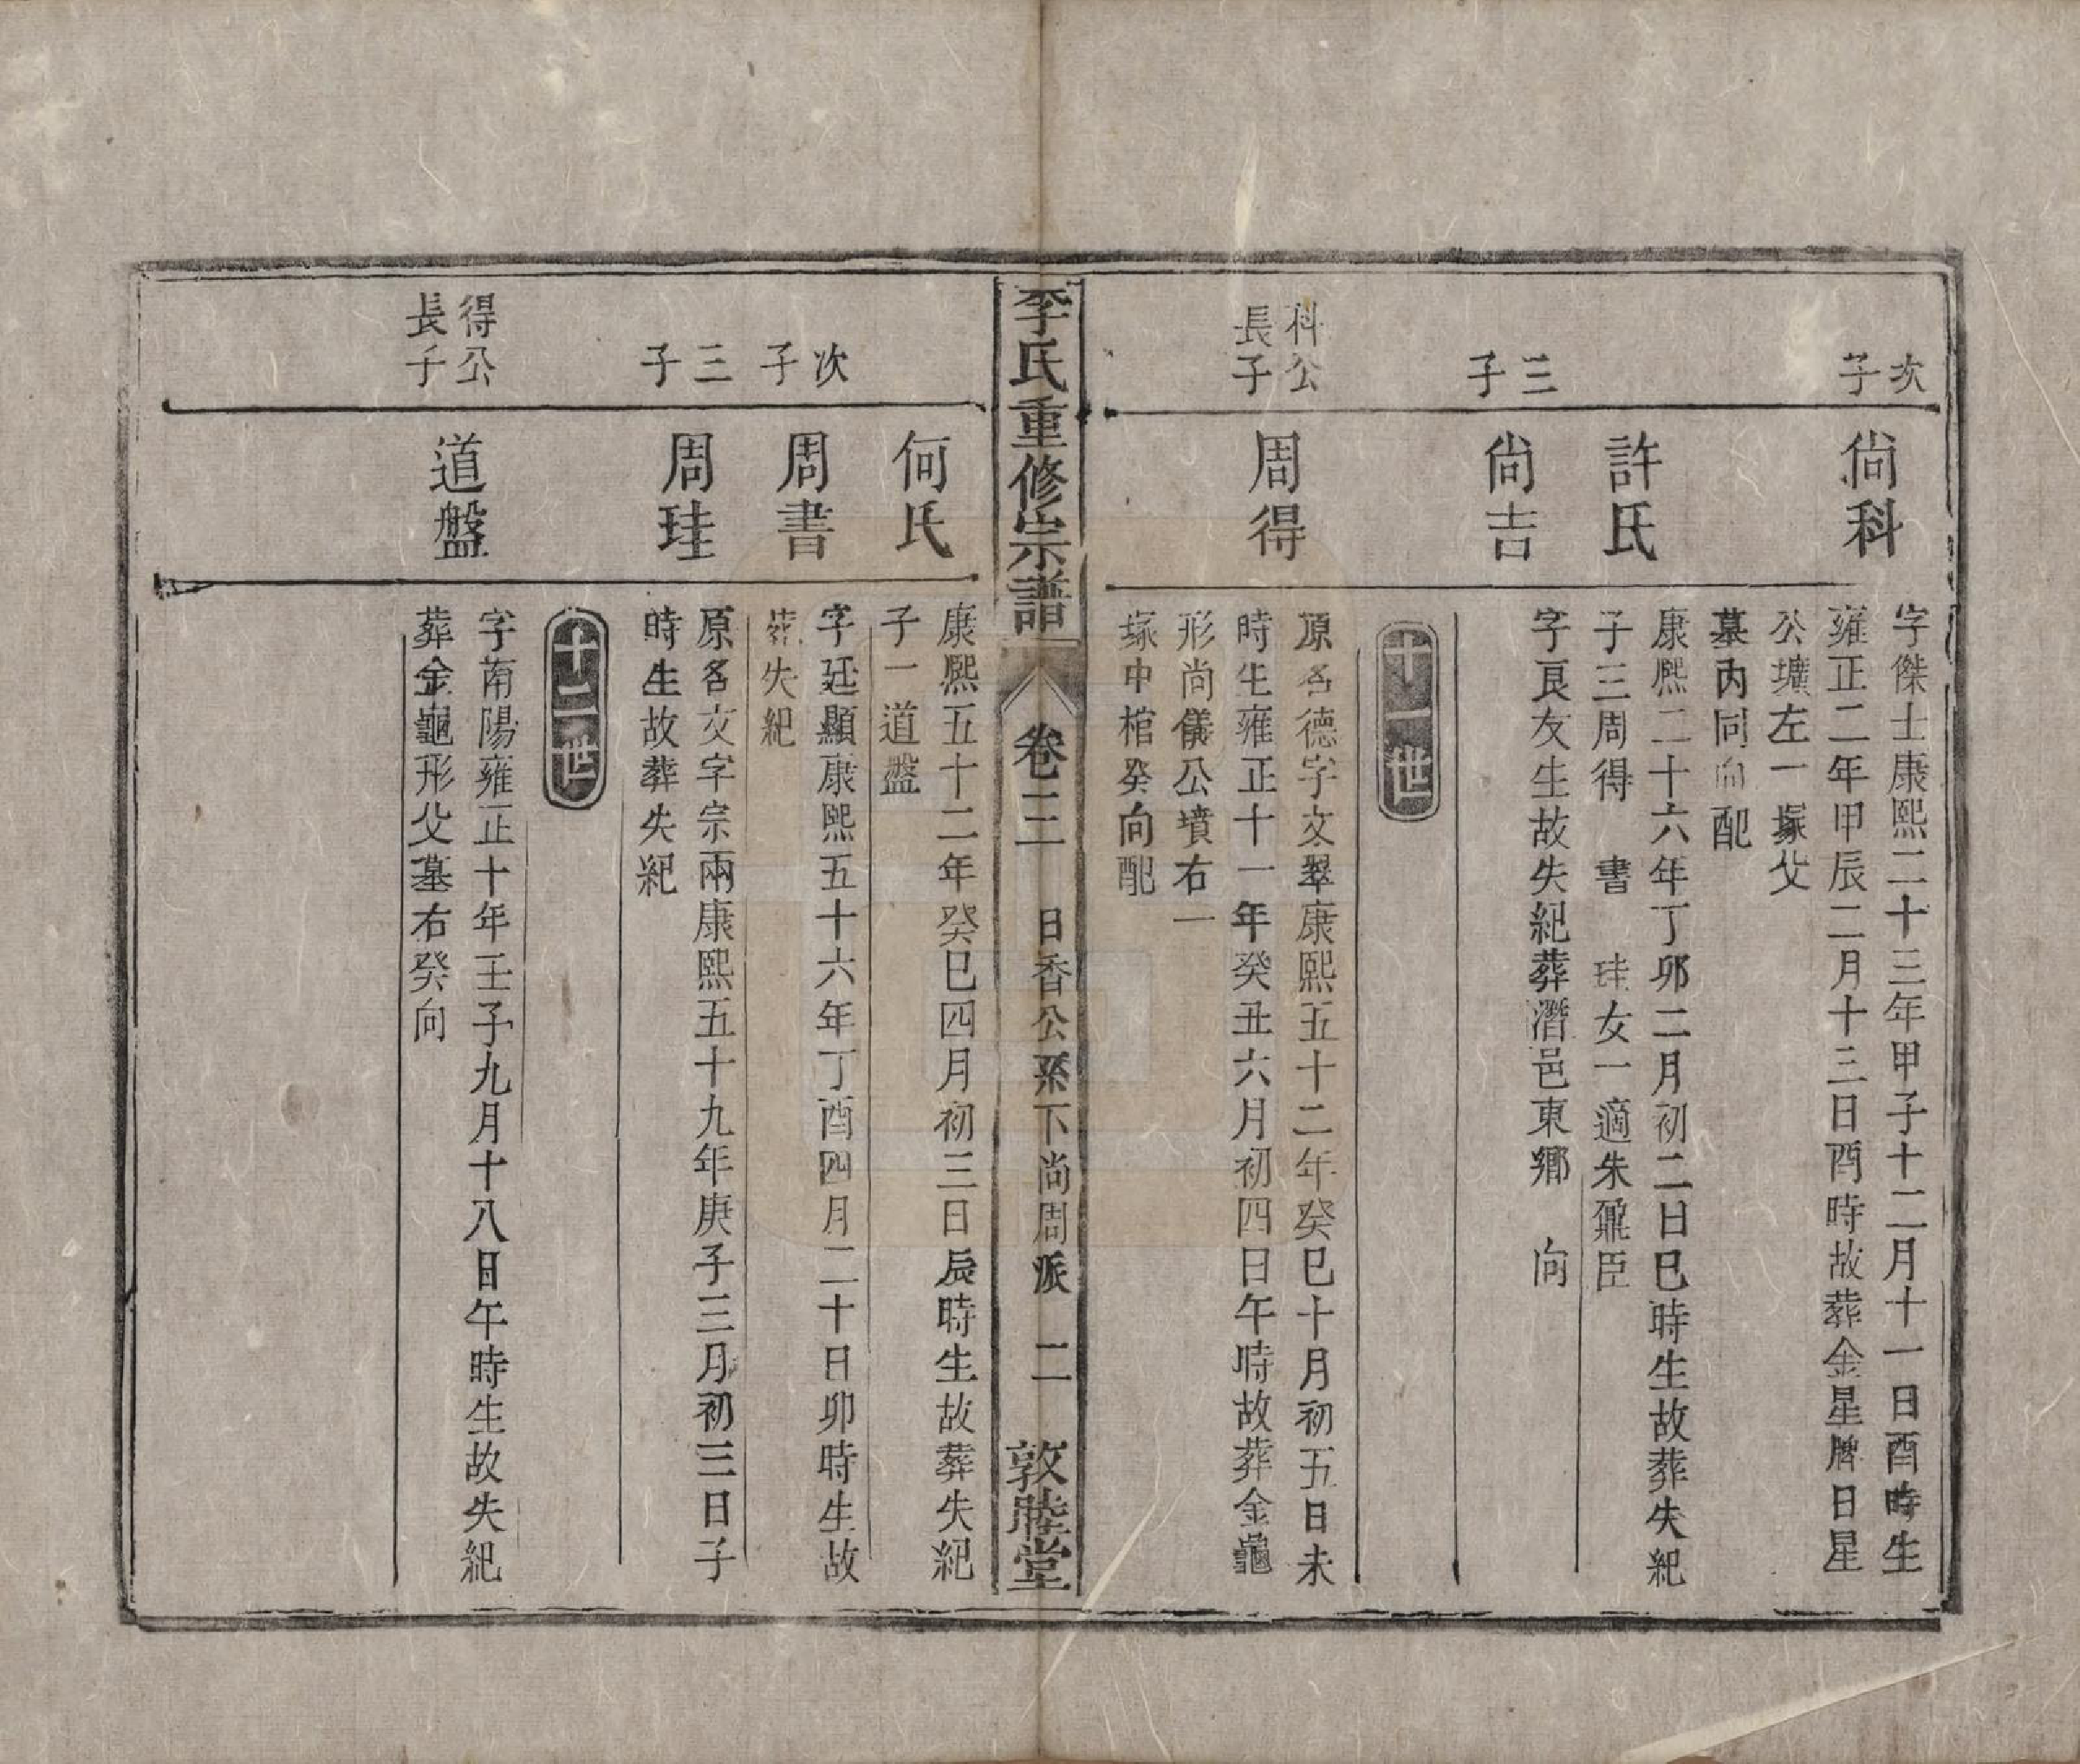 次子
尙科
字傑士康熙二十三年甲子十二月十一日酉時生
雍正二年甲辰二月十三日酉時故葬金星牌日星
公壙左一塚父
墓內同向配
許氏
康熙二十六年丁卯二月初二日巳時生故葬失紀
子三周得　書　珪女一適朱鼐臣
三子
尙吉
字良友生故失紀葬潛邑東鄉　向
十一世
科公
長子
周得
原名德字文翠康熙五十二年癸巳十月初五日未
時生雍正十一年癸丑六月初四日午時故葬金龜
形尚儀公墳右一
塚中棺癸向配
李氏重修宗譜　卷二　日香公系下尚周派　二　敦睦堂
何氏
康熙五十二年癸巳四月初三日辰時生故葬失紀
子一道盤
次子
周書
字廷顯康熙五十六年丁酉四月二十日卯時生故
葬失紀
三子
周珪
原名文字宗兩康熙五十九年庚子三月初三日子
時生故葬失紀
十二世
得公
長子
道盤
字南陽雍正十年壬子九月十八日午時生故失紀
葬金龜形父墓右癸向